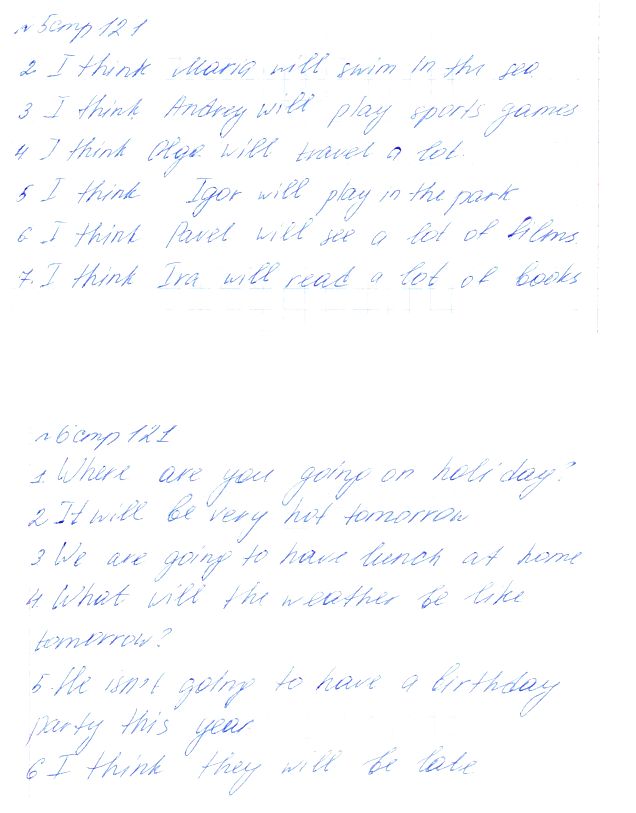 № 5 стр 121
2 I think Maria will swim in the sea
3 I think Andrey will play sports games
4 I think Olga will travel a lot.
5 I think Igor will play in the park
6 I think Pavel will see a lot of films.
7. I think Ira will read a lot of books
№ 6 стр 121
1 Where are you going on holiday?
2 It will be very hot tomorrow
3 We are going to have lunch at home
4. What will the weather be like
tomorrow?
5. He isn't going to have a birthday
party this year
6 I think they will be late